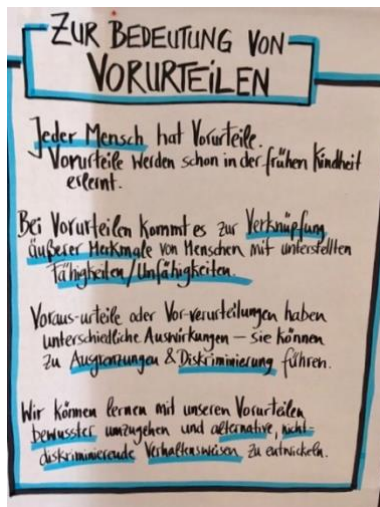 ZUR BEDEUTUNG VON
VORURTEILEN
Jeder Mensch hat Vorurteile.
Vorurteile werden schon in der frühen Kindheit
erlernt.
Bei Vorurteilen kommt es zur Verknüpfung
äußerer Merkmale von Menschen mit unterstellten
Fähigkeiten/Unfähigkeiten.
Voraus-urteile oder Vor-verurteilungen haben
unterschiedliche Auswirkungen – sie können
zu Ausgrenzungen & Diskriminierung führen.
Wir können lernen mit unseren Vorurteilen
bewusster umzugehen und alternative, nicht-
diskriminierende Verhaltensweisen zu entwickeln.